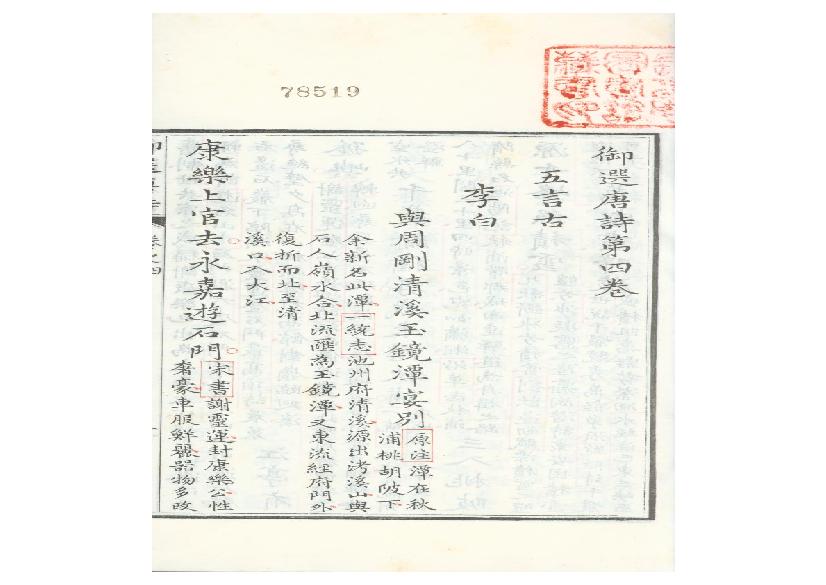 78519
御選唐詩第四卷
五言古
李白
與周剛清溪玉鏡潭宴別
原注潭在秋
浦桃胡陂下
余新名此潭一統志池州府清溪源出洘溪山與
石人嶺水合北流匯為玉鏡潭又東流經府門外
復折而北至清
溪口入大江
康樂上官去永嘉遊石門
宋書謝靈運封康樂公性
奢豪車服鮮麗器物多改